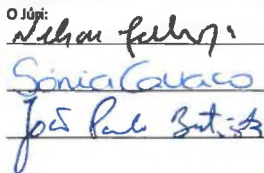 O Júri:
Nelson
Sónia Cavaco
João Paulo Batista